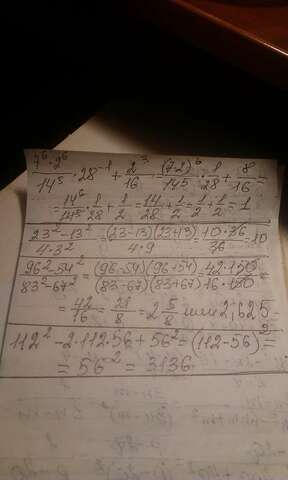 7⁶·2⁶/14⁵ · 28⁻¹ + 2³/16 = (7·2)⁶/14⁵ · 1/28 + 8/16 =
= 14⁶/14⁵ · 1/28 + 1/2 = 14/28 + 1/2 = 1/2 + 1/2 = 1
23²-13²/4·3² = (23-13)(23+13)/4·9 = 10·36/36 = 10
96²-54²/83²-67² = (96-54)(96+54)/(83-67)(83+67) = 42·150/16·150 =
= 42/16 = 21/8 = 2 5/8 или 2,625
112² - 2·112·56 + 56² = (112-56)² =
= 56² = 3136